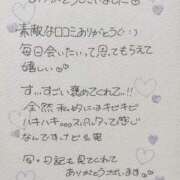 ありがとうございました
素敵な口コミありがとう(:)
毎日会いたいって思ってもらえて
嬉しい
すっごい褒めてくれて!!
全然 私的にはキビキビ
ハキハキ スパルタって感じ
なんですけどね笑
写メ日記も見てくれて
ありがとうございます